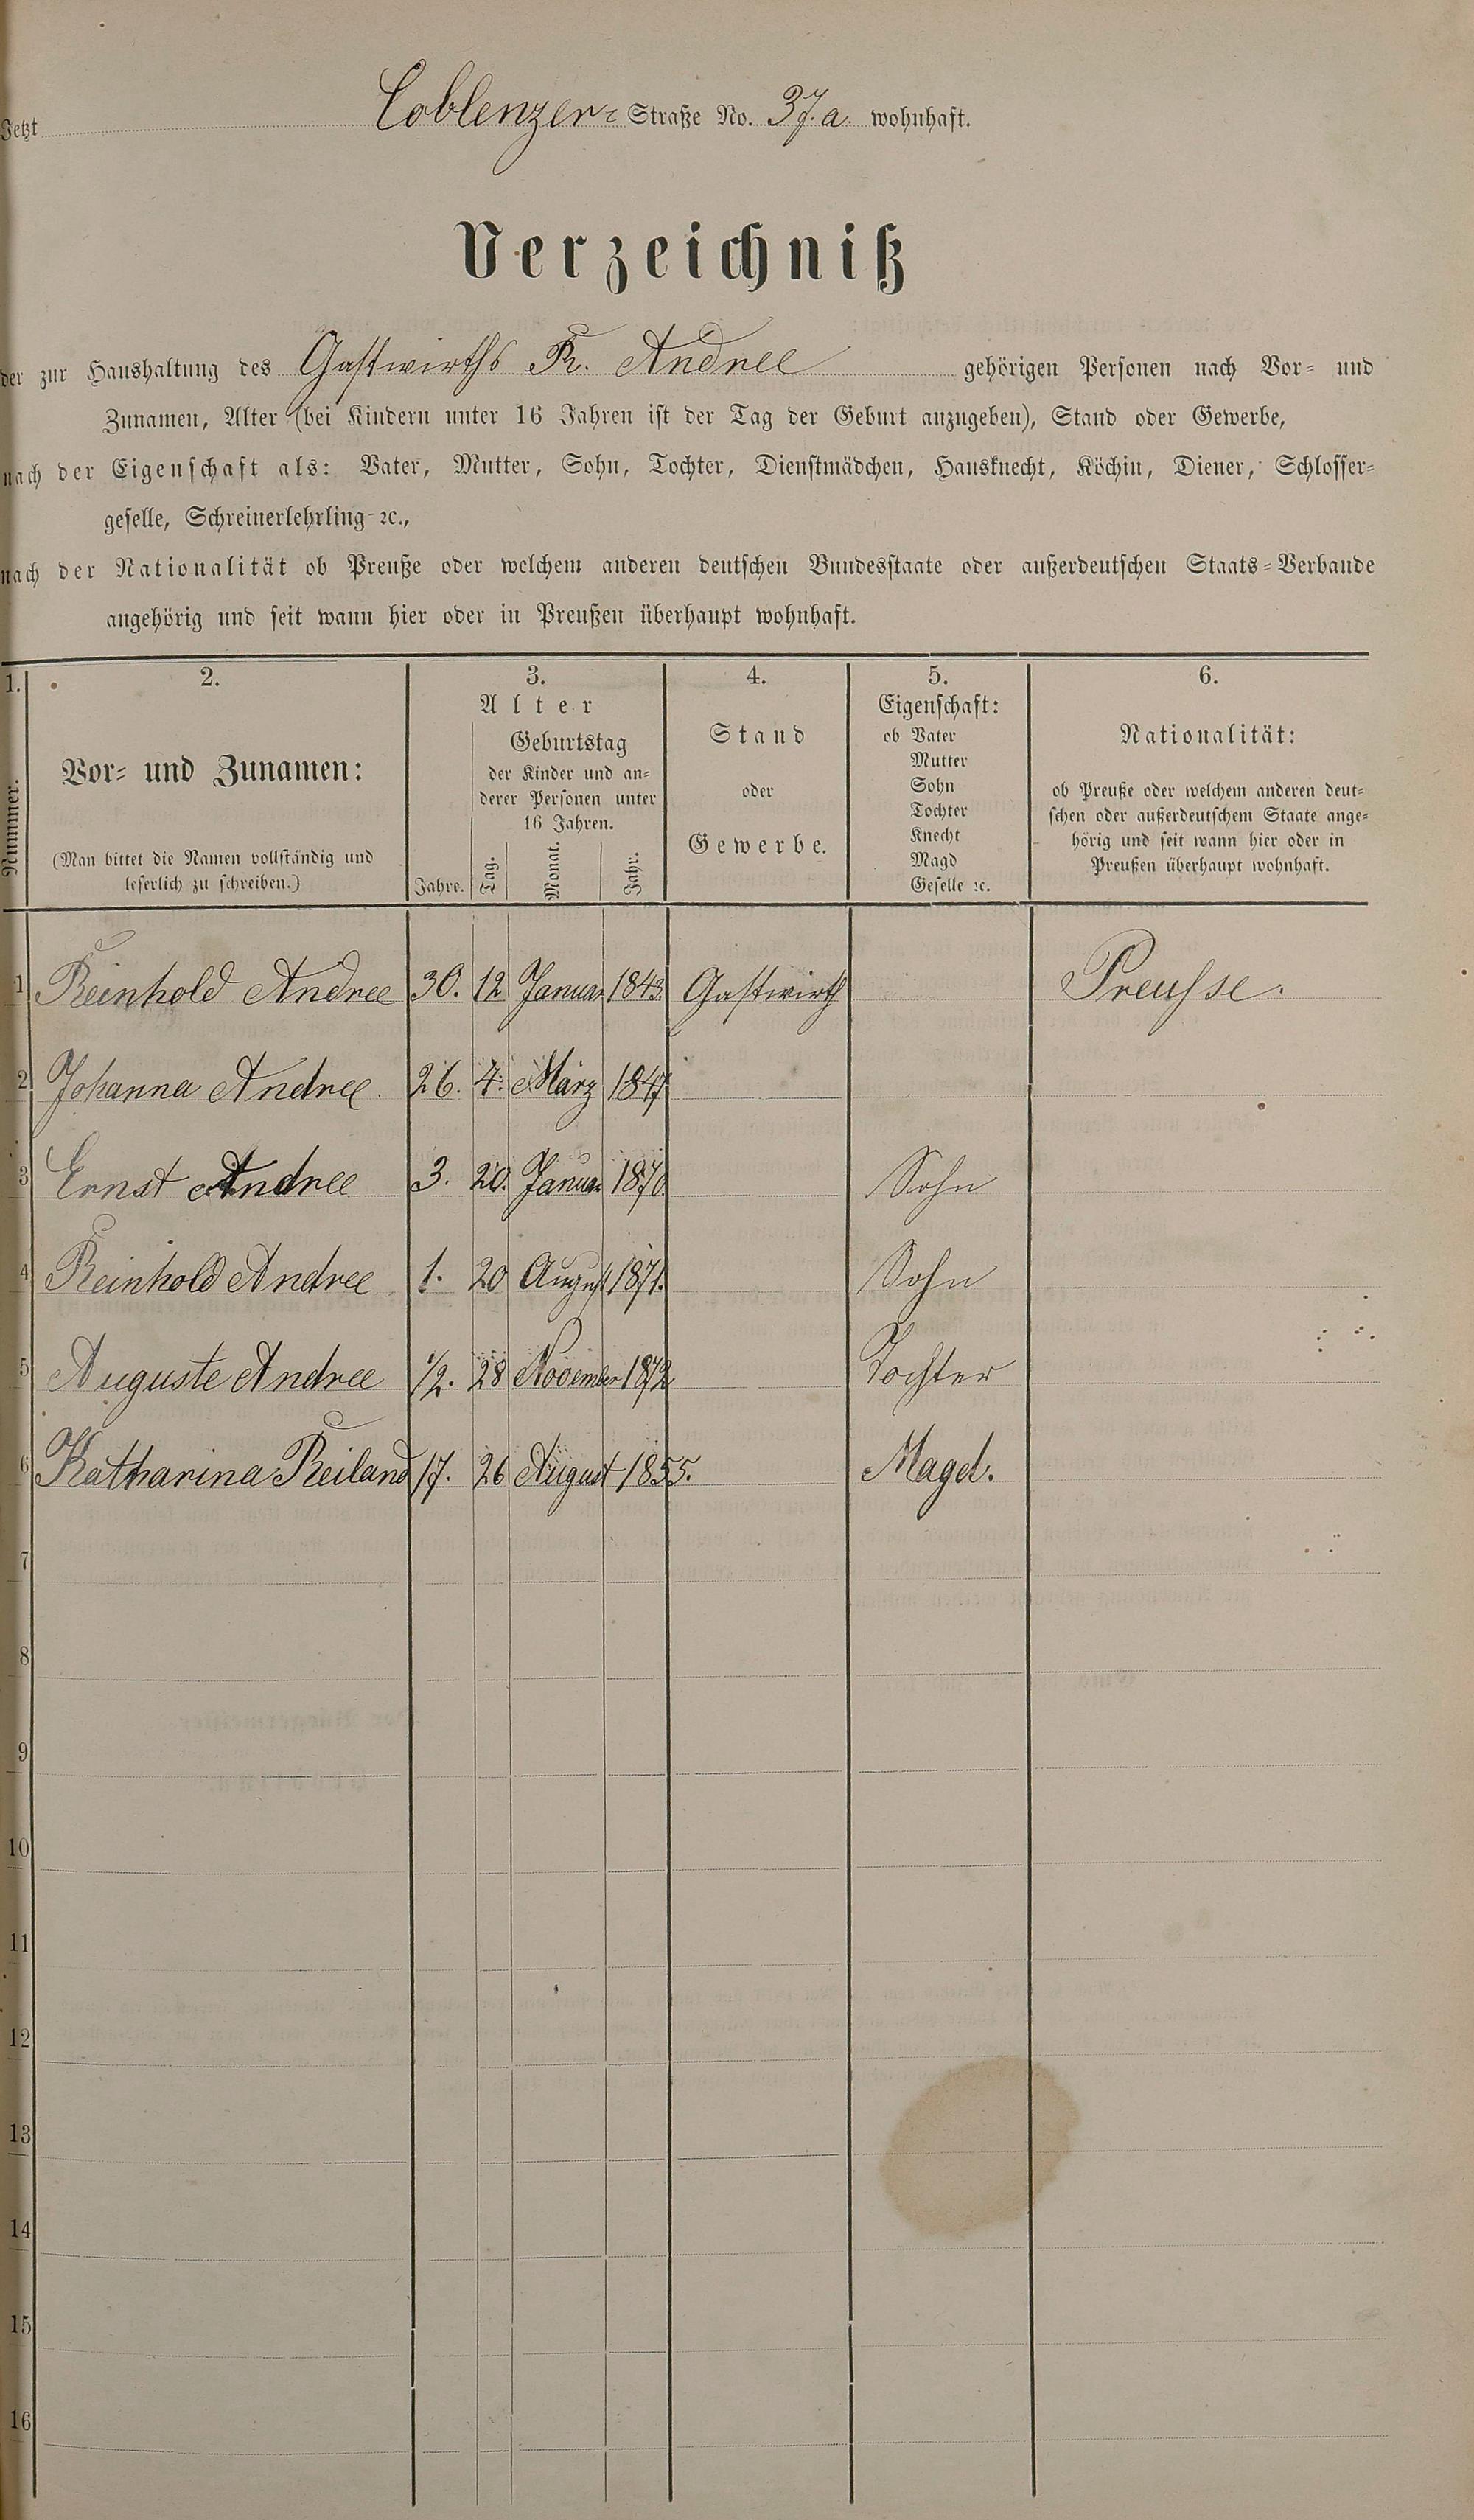 Jetzt Coblenzer- Straße No. 37.a. wohnhaft.
Verzeichniß
der zur Haushaltung des Gastwirths R. Andree gehörigen Personen nach Vor- und
Zunamen, Alter (bei Kindern unter 16 Jahren ist der Tag der Geburt anzugeben), Stand oder Gewerbe,
nach der Eigenschaft als: Vater, Mutter, Sohn, Tochter, Dienstmädchen, Hausknecht, Köchin, Diener, Schlosser-
geselle, Schreinerlehrling ꝛc.,
nach der Nationalität ob Preuße oder welchem anderen deutschen Bundesstaate oder außerdeutschen Staats-Verbande
angehörig und seit wann hier oder in Preußen überhaupt wohnhaft.
1. 2. 3. 4. 5. 6.
Nummer.
Vor- und Zunamen:
(Man bittet die Namen vollständig und
leserlich zu schreiben.)
Alter
Geburtstag
der Kinder und an-
derer Personen unter
16 Jahren.
Jahre. Tag. Monat. Jahr.
Stand
oder
Gewerbe.
Eigenschaft:
ob Vater
Mutter
Sohn
Tochter
Knecht
Magd
Geselle ꝛc.
Nationalität:
ob Preuße oder welchem anderen deut-
schen oder außerdeutschem Staate ange-
hörig und seit wann hier oder in
Preußen überhaupt wohnhaft.
1 Reinhold Andree 30. 12 Januar 1843. Gastwirth Preusse.
2 Johanna Andree. 26. 4. März 1847
3 Ernst Andree 3. 20. Januar 1870. Sohn
4 Reinhold Andree 1. 20 August 1871. Sohn
5 Auguste Andree 1/2. 28 November 1872 Tochter
6 Katharina Reiland 17. 26 August 1855. Magd.
7
8
9
10
11
12
13
14
15
16